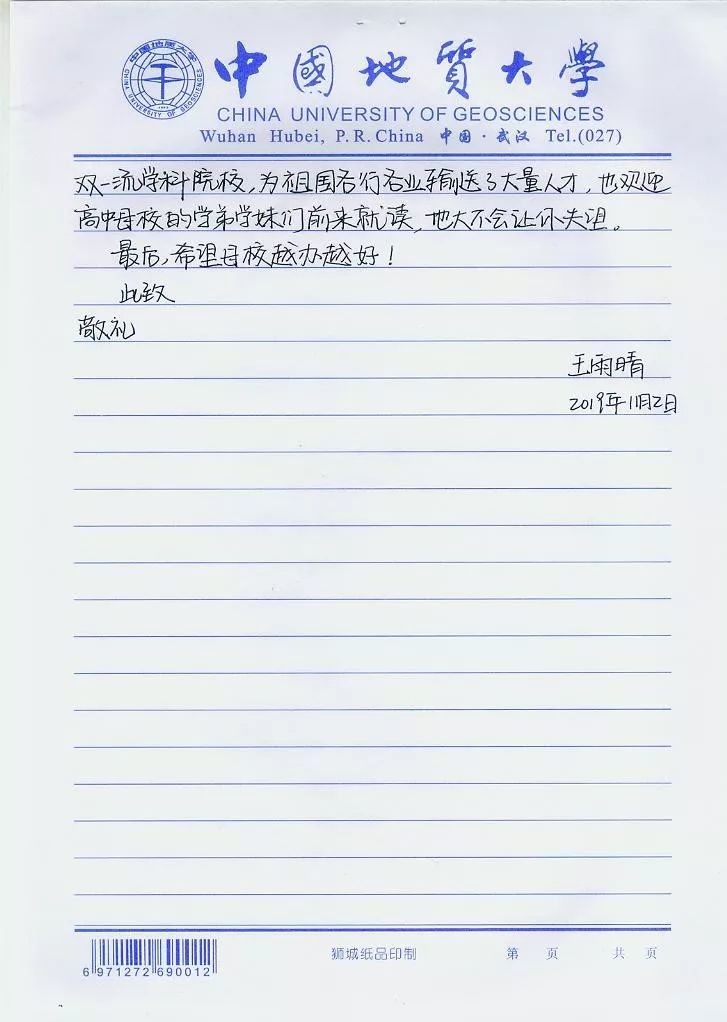 中國地質大學
CHINA UNIVERSITY OF GEOSCIENCES
Wuhan Hubei, P.R.China 中国·武汉 Tel.(027)
双一流学科院校,为祖国各行各业输送了大量人才,也欢迎
高中母校的学弟学妹们前来就读,地大不会让你失望。
最后,希望母校越办越好!
此致
敬礼
王雨晴
2019年11月2日
6 971272 690012
狮城纸品印制 第 页 共 页